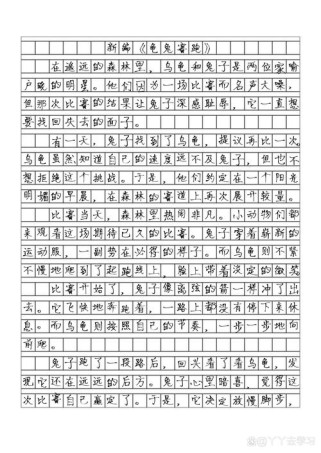 新编《龟兔赛跑》
在遥远的森林里，乌龟和兔子是两位家喻
户晓的明星。他们因为一场比赛而名声大噪，
但那次比赛的结果让兔子深感耻辱，它一直想
要找回失去的面子。
有一天，兔子找到了乌龟，提议再比一次。
乌龟虽然知道自己的速度远不及兔子，但也不
想拒绝这个挑战。于是，他们约定在一个阳光
明媚的早晨，在森林的赛道上再次展开较量。
比赛当天，森林里热闹非凡。小动物们都
来观看这场期待已久的比赛。兔子穿着崭新的
运动服，一副势在必得的样子。而乌龟则不紧
不慢地爬到了起跑线上，脸上带着淡定的微笑
比赛开始了，兔子像离弦的箭一样冲了出
去。它飞快地奔跑着，一路上都没有停下来休
息。而乌龟则按照自己的节奏，一步一步地向
前爬。
兔子跑了一段路后，回头看了看乌龟，发
现它还在远远的后方。兔子心里暗喜，觉得这
次比赛自己赢定了。于是，它决定放慢脚步，